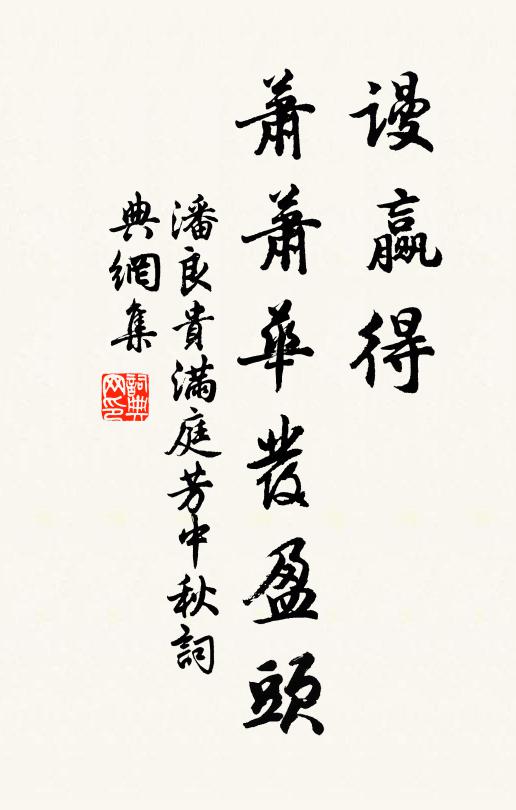 謾贏得
蕭蕭華發盈頭
潘良貴滿庭芳中秋詞
典網集
詞典网印